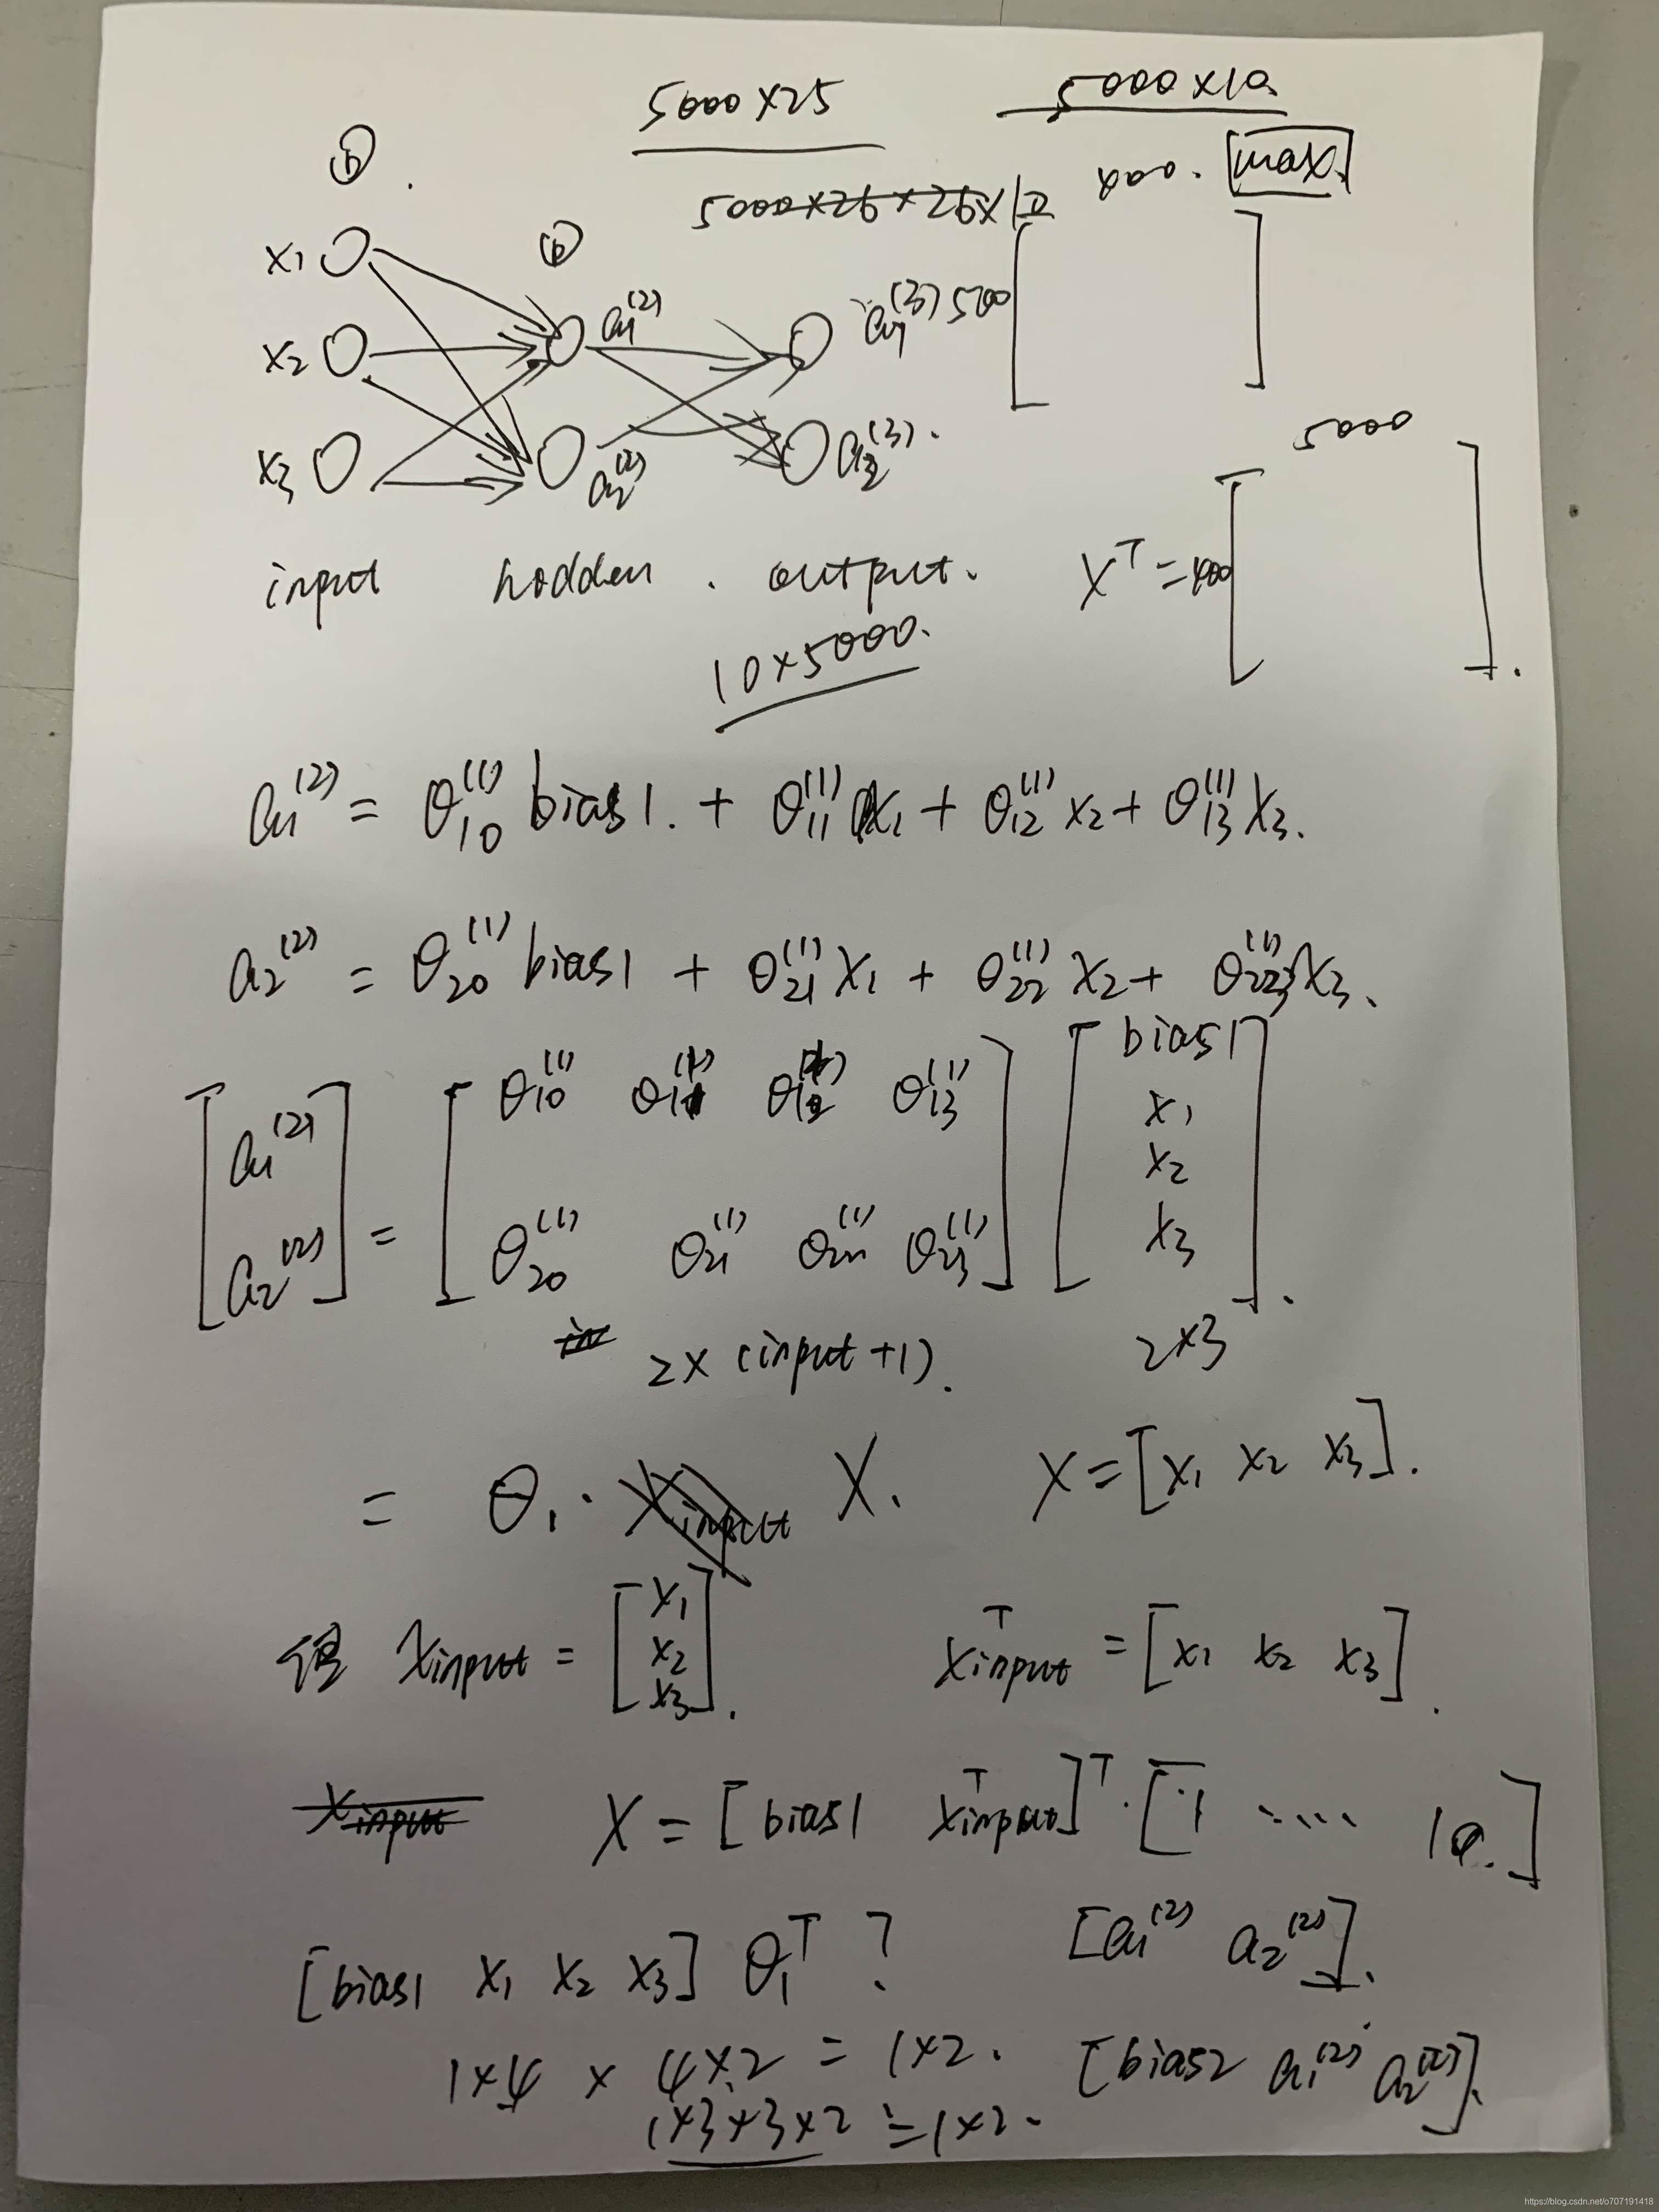 5000×25
5000×10
b.
max
5000×26×26×10
x₁
b
x₂
a₁⁽²⁾
a₁⁽³⁾ 5000
x₃
a₂⁽²⁾
a₂⁽³⁾.
5000
input hodden . output.
Xᵀ = 400
10×5000.
a₁⁽²⁾ = θ₁₀⁽¹⁾ bias1. + θ₁₁⁽¹⁾ x₁ + θ₁₂⁽¹⁾ x₂ + θ₁₃⁽¹⁾ x₃.
a₂⁽²⁾ = θ₂₀⁽¹⁾ bias1 + θ₂₁⁽¹⁾ x₁ + θ₂₂⁽¹⁾ x₂ + θ₂₃⁽¹⁾ x₃.
bias1
θ₁₀⁽¹⁾ θ₁₁⁽¹⁾ θ₁₂⁽¹⁾ θ₁₃⁽¹⁾
x₁
a₁⁽²⁾
x₂
a₂⁽²⁾ = θ₂₀⁽¹⁾ θ₂₁⁽¹⁾ θ₂₂⁽¹⁾ θ₂₃⁽¹⁾
x₃
in 2×(input+1). 2×3
= θ₁ · Xinput X. X = [x₁ x₂ x₃].
x₁
Xinput = x₂
x₃
Xᵀinput = [x₁ x₂ x₃].
Xinput X = [bias1 Xᵀinput]ᵀ. [1 .... 10.]
[bias1 x₁ x₂ x₃] θ₁ᵀ ? [a₁⁽²⁾ a₂⁽²⁾].
1×4 × 4×2 = 1×2. [bias2 a₁⁽²⁾ a₂⁽²⁾].
1×3×3×2 = 1×2.
https://blog.csdn.net/o707191418